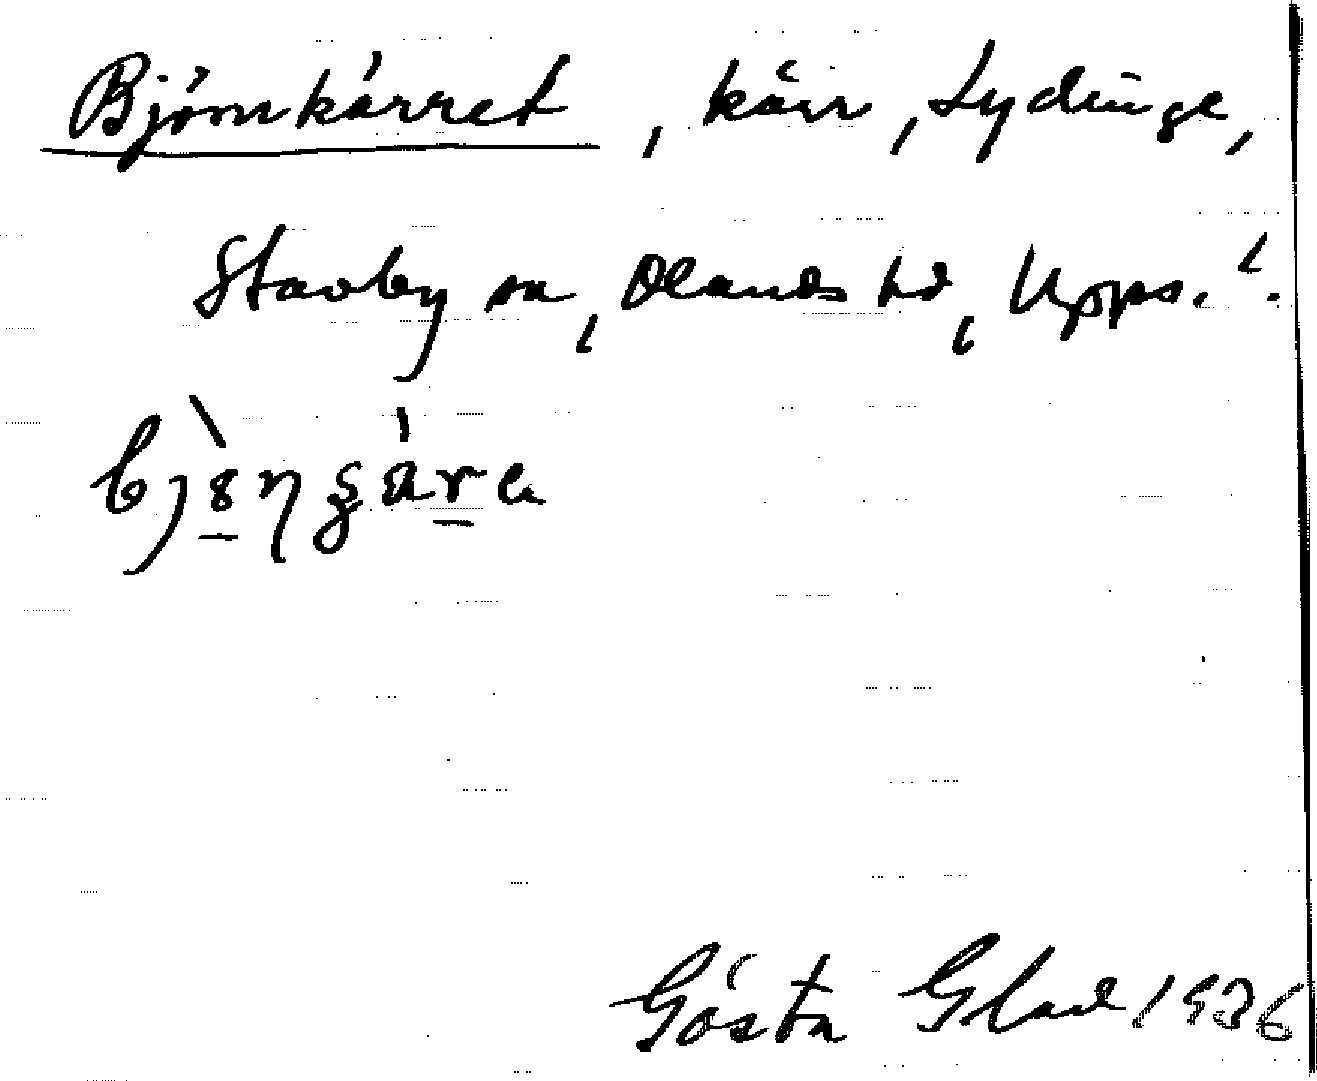 Björnkärret, kärr, Lydinge,
Stavby sn, Olands hd, Upps. l.
Gösta Glad 1936